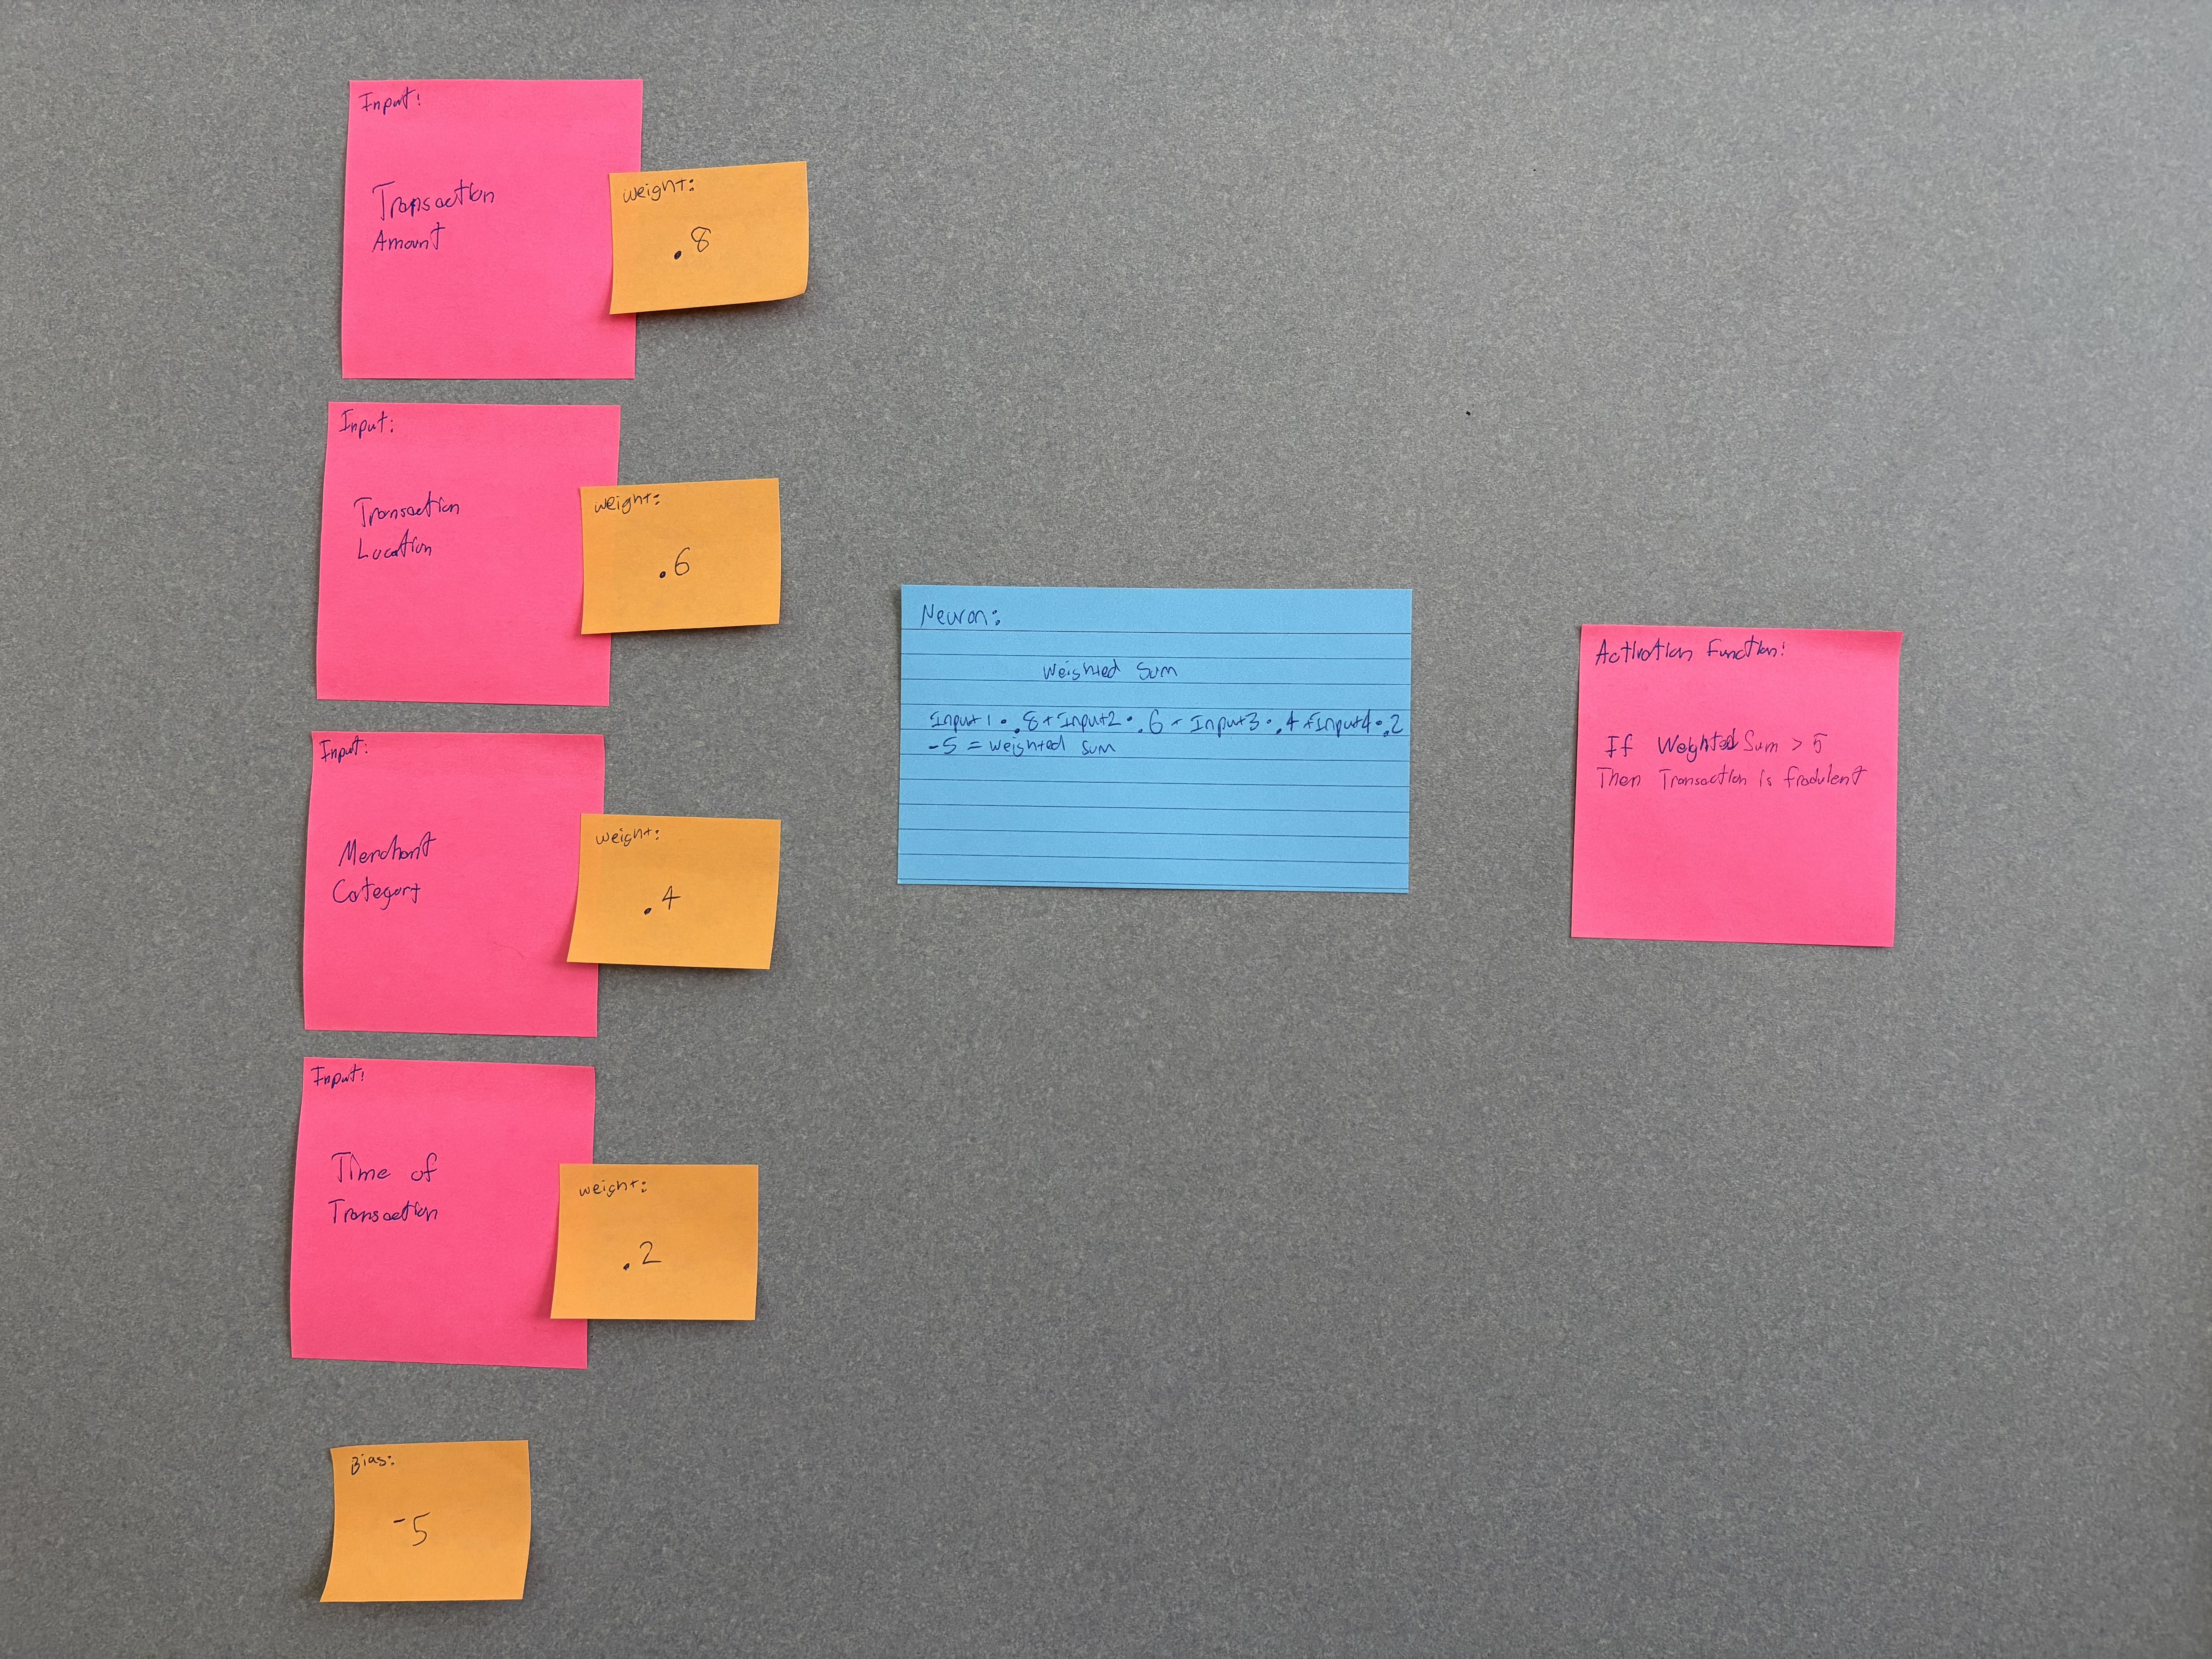 Input:
Transaction
Amount
weight:
.8
Input:
Transaction
Location
weight:
.6
Input:
Merchant
Category
weight:
.4
Input:
Time of
Transaction
weight:
.2
Bias:
-5
Neuron:
Weighted Sum
Input1 • .8 + Input2 • .6 + Input3 • .4 + Input4 • .2
-5 = weighted sum
Activation Function:
If Weighted Sum > 5
Then Transaction is fradulent